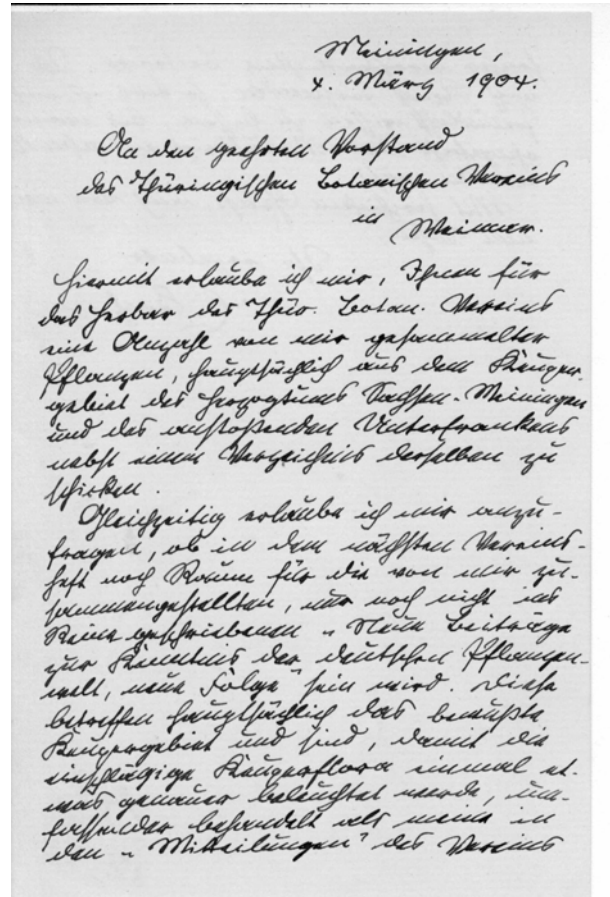 Meiningen,
4. März 1904.
An den geehrten Vorstand
des Thüringischen Botanischen Vereins
in Weimar.
Hiermit erlaube ich mir, Ihnen für
das Herbar des Thür. Botan. Vereins
eine Anzahl von mir gesammelter
Pflanzen, hauptsächlich aus dem Keuper-
gebiet des Herzogtums Sachsen-Meiningen
und des anstoßenden Unterfrankens
nebst einem Verzeichnis derselben zu
schicken.
Gleichzeitig erlaube ich mir anzu-
fragen, ob in dem nächsten Vereins-
heft noch Raum für die von mir zu-
sammengestellten, nur noch nicht ins
Reine geschriebenen „Neue Beiträge
zur Kenntnis der deutschen Pflanzen-
welt, neue Folge" sein wird. Diese
betreffen hauptsächlich das
Keupergebiet und sind, damit die
einschlägige Keuperflora einmal et-
was genauer beleuchtet werde, um-
fassender behandelt als meine in
den „Mitteilungen" des Vereins